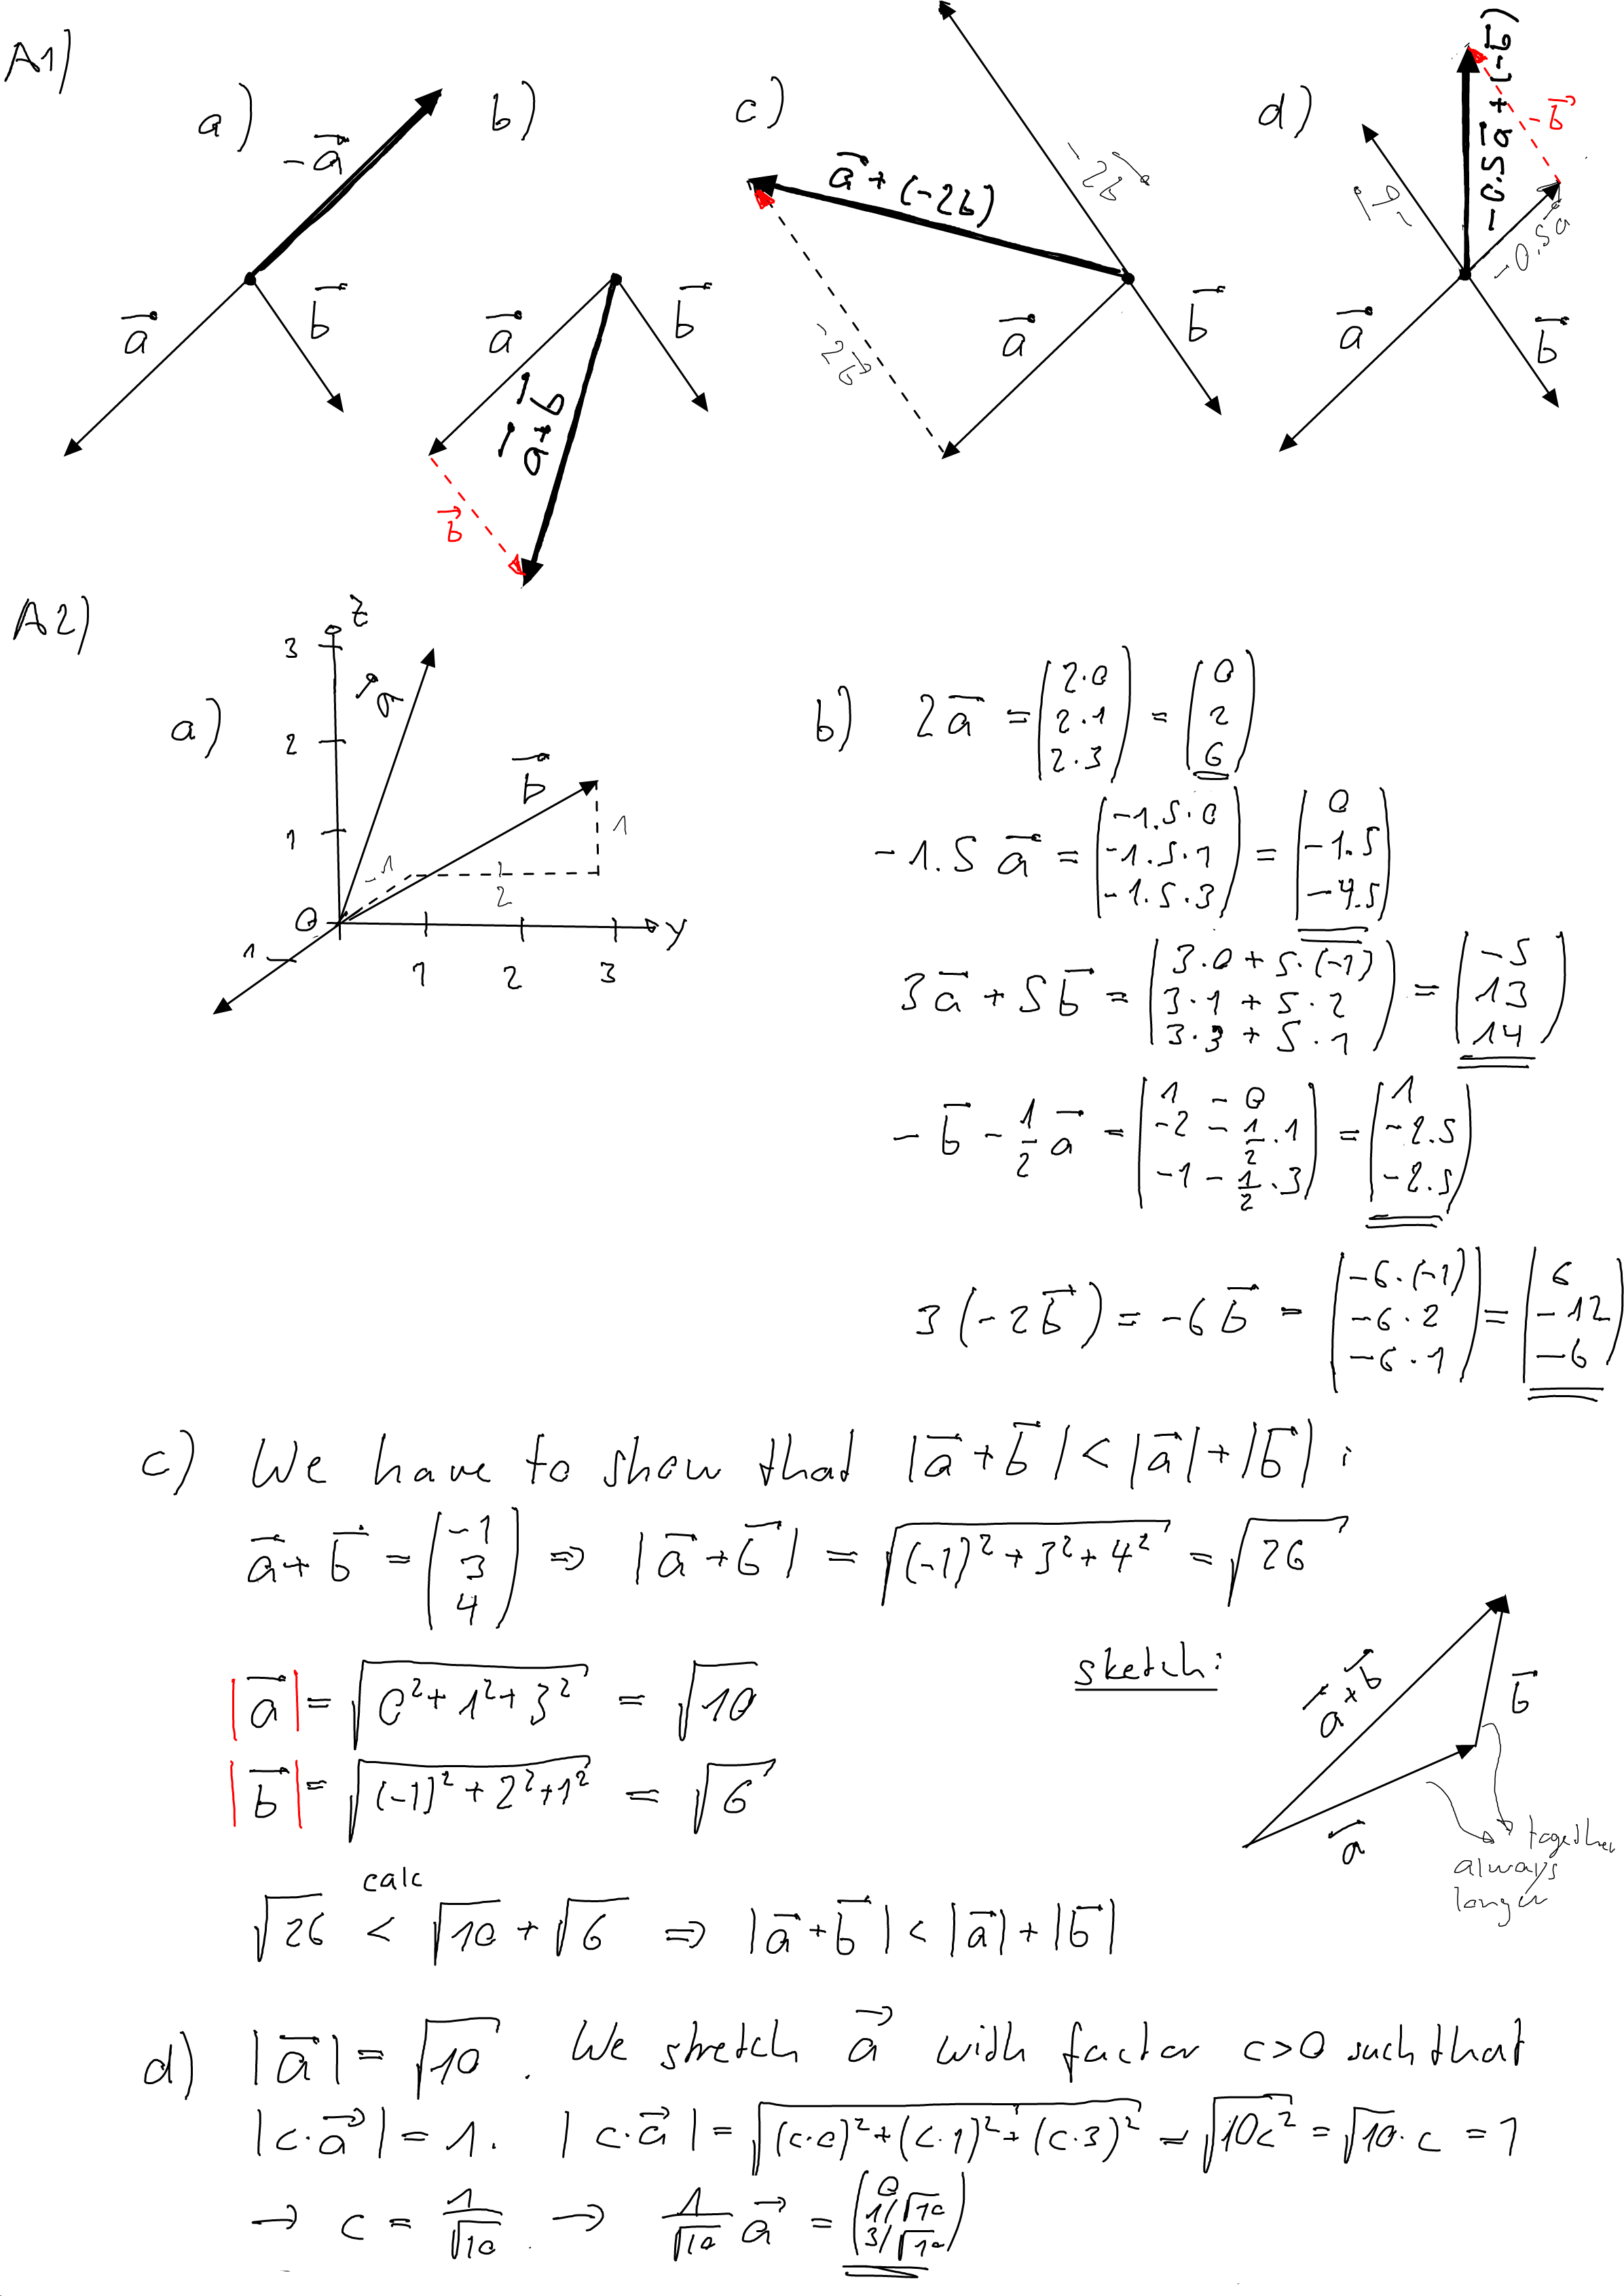 A1)
a) -a⃗ a⃗ b⃗
b) a⃗ b⃗ a⃗+b⃗ b⃗
c) a⃗ + (-2b) -2b⃗ -2b⃗ a⃗ b⃗
d) -0.5a⃗ + (-b⃗) -b⃗ -b⃗ -0.5a⃗ a⃗ b⃗
A2)
a) z 3 2 1 0 1 1 2 3 y a⃗ b⃗ -1 2 1
b) 2a⃗ = (2·0, 2·1, 2·3) = (0, 2, 6)
-1.5 a⃗ = (-1.5·0, -1.5·1, -1.5·3) = (0, -1.5, -4.5)
3a⃗ + 5b⃗ = (3·0 + 5·(-1), 3·1 + 5·2, 3·3 + 5·1) = (-5, 13, 14)
-b⃗ - 1/2 a⃗ = (1 - 0, -2 - 1/2·1, -1 - 1/2·3) = (1, -2.5, -2.5)
3(-2b⃗) = -6b⃗ = (-6·(-1), -6·2, -6·1) = (6, -12, -6)
c) We have to show that |a⃗+b⃗| < |a⃗|+|b⃗| :
a⃗+b⃗ = (-1, 3, 4) ⇒ |a⃗+b⃗| = √((-1)²+3²+4²) = √26
|a⃗| = √(0²+1²+3²) = √10
sketch: a⃗+b⃗ b⃗ a⃗
together
always
longer
|b⃗| = √((-1)²+2²+1²) = √6
calc
√26 < √10 + √6 ⇒ |a⃗+b⃗| < |a⃗|+|b⃗|
d) |a⃗| = √10. We stretch a⃗ with factor c>0 such that
|c·a⃗| = 1. |c·a⃗| = √((c·0)²+(c·1)²+(c·3)²) = √(10c²) = √10·c = 1
→ c = 1/√10 → 1/√10 a⃗ = (0, 1/√10, 3/√10)